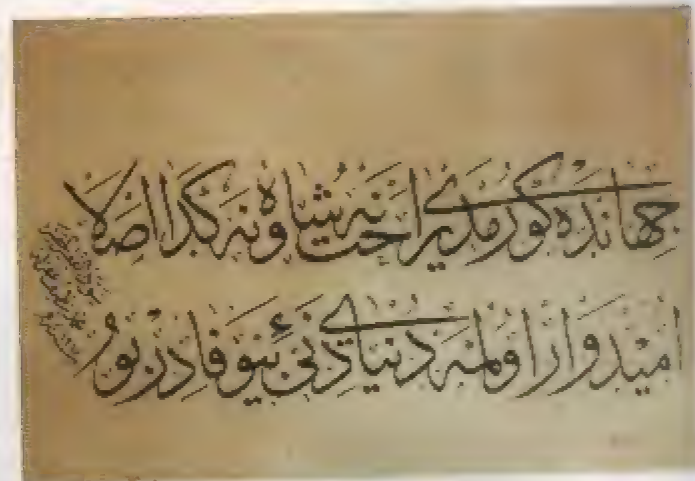 جهانده كورمدی راحت نه شاه و نه كدا اصلا
اميدوار اولمه دنیای دنی بیوفادر بو